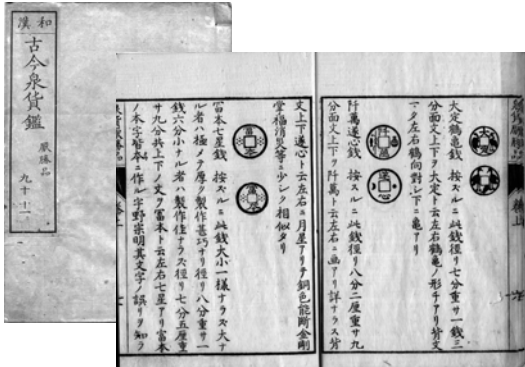 和漢
古今泉貨鑑
厭勝品
九十十一
大定鶴亀銭 按スルニ此銭径リ七分重サ一銭三
分面文上下ヲ大定ト云左右鶴亀ノ形チアリ背文
マタ左右鶴向対シ下ニ亀アリ
阡萬遂心銭 按スルニ此銭径リ八分二厘重サ九
分面文上下ヲ阡萬ト云左右ニ画アリ詳ナラス背
文上下遂心ト云左右ニ月星アリテ銅色能断金剛
堂福消災等ニ少シク相似タリ
富本七星銭 按スルニ此銭大小一様ナラス大ナ
ル者ハ極メテ厚ク製作甚巧ナリ径リ八分重サ一
銭六分小ナル者ハ製作佳ナラス径リ七分五厘重
サ九分共上下ノ文ヲ富本ト云左右七星アリ富本
ノ本字皆夲ニ作ル宇野宗明其文字ノ誤リヲ知ラ